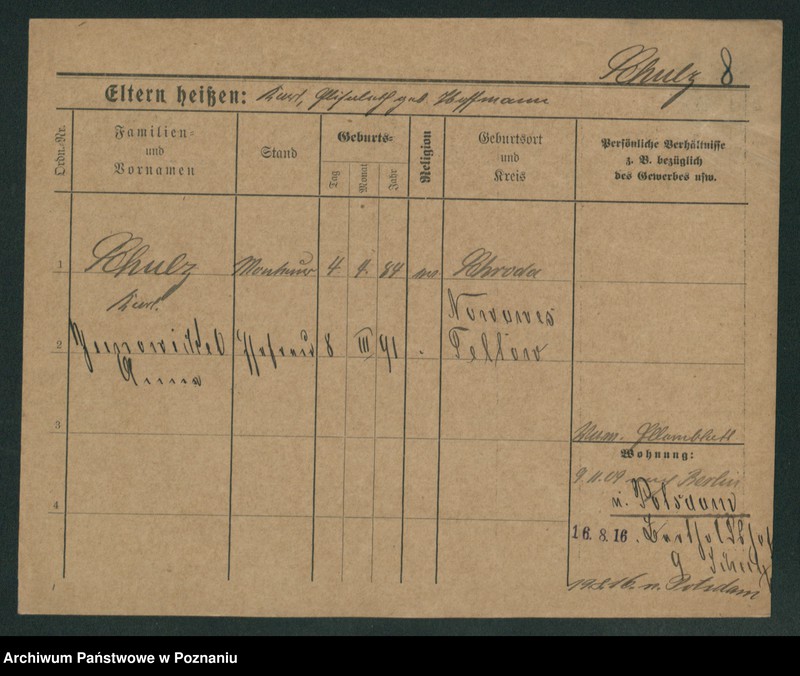 Schulz 8
Eltern heißen: Kurt, Elisabeth geb. Hoffmann
Ordn.-Nr.
Familien-
und
Vornamen
Stand
Geburts-
Tag
Monat
Jahr
Religion
Geburtsort
und
Kreis
Persönliche Verhältnisse
z. B. bezüglich
des Gewerbes usw.
1
Schulz
Monteur
4. 9. 84
Schroda
Kurt.
Nowawes
2
8 III 91
Teltow
Anna
3
Wohnung:
9.11.09 Berlin
n. Potsdam
4
16.8.16.
n. Potsdam
Archiwum Państwowe w Poznaniu